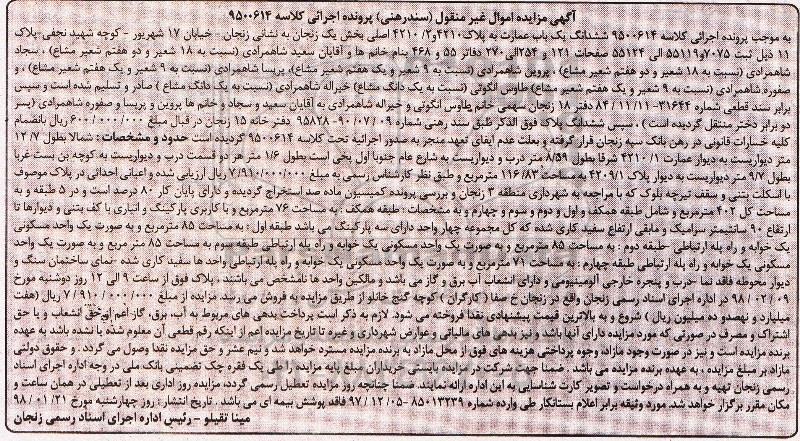 آگهی مزایده اموال غیر منقول (سندرهنی) پرونده اجرائی کلاسه ۹۵۰۰۶۱۴
به موجب پرونده اجرائی کلاسه ۹۵۰۰۶۱۴ ششدانگ یک باب عمارت به پلاک ۴۲۱۰و۴۲۱۰/۲ اصلی بخش یک زنجان به نشانی زنجان - خیابان ۱۷ شهریور - کوچه شهید نجفی-پلاک
۱۲ ذیل ثبت ۷۰۷۵و۵۵۱۱۹ الی ۵۵۱۲۴ صفحات ۱۲۱ و ۲۵۴الی۲۷۰ دفاتر ۵۵ و ۴۶۸ بنام خانم ها و آقایان سعید شاهمرادی (نسبت به ۱۸ شعیر و دو هفتم شعیر مشاع) ، سجاد
شاهمرادی (نسبت به ۱۸ شعیر و دو هفتم شعیر مشاع) ، پروین شاهمرادی (نسبت به ۹ شعیر و یک هفتم شعیر مشاع)، پریسا شاهمرادی (نسبت به ۹ شعیر و یک هفتم شعیر مشاع) ، و
صفوره شاهمرادی (نسبت به ۹ شعیر و یک هفتم شعیر مشاع) طاوس انگوتی (نسبت به یک دانگ مشاع) خیراله شاهمرادی (نسبت به یک دانگ مشاع ) صادر و تسلیم شده است و سپس
برابر سند قطعی شماره ۳۱۶۴۴-۸۴/۱۱/۱۱ دفتر ۱۸ زنجان سهمی خانم طاوس انگوتی و خیراله شاهمرادی به آقایان سعید و سجاد و خانم ها پروین و پریسا و صفوره شاهمرادی (پسر
دو برابر دختر منتقل گردیده است) ، سپس ششدانگ پلاک فوق الذکر طبق سند رهنی شماره ۹۵۸۲۸-۹۰/۰۷/۰۹ دفتر خانه ۱۵ زنجان در قبال مبلغ ۶۰۰/۰۰۰/۰۰۰ ریال بانضمام
کلیه خسارات قانونی در رهن بانک سپه زنجان قرار گرفته و بعلت عدم ایفای تعهد منجر به صدور اجرائیه تحت کلاسه ۹۵۰۰۶۱۴ گردیده است حدود و مشخصات : شمالا بطول ۱۲/۷
متر دیواریست به دیوار عمارت ۴۲۱۰/۱ شرقا بطول ۸/۵۹ متر درب و دیواریست به شارع عام جنوبا اول پخی است بطول ۱/۶ متر هر دو قسمت درب و دیواریست به کوچه بن بست غربا
بطول ۹/۷ متر دیواریست به دیوار پلاک ۴۲۰۹/۱ به مساحت ۱۱۶/۸۳ مترمربع و طبق نظر کارشناس رسمی به مبلغ ۷/۹۱۰/۰۰۰/۰۰۰ ریال ارزیابی شده و اعیانی احداثی در پلاک موصوف
با اسکلت بتنی و سقف تیرچه بلوک که با مراجعه به شهرداری منطقه ۳ زنجان و بررسی پرونده کمیسیون ماده صد استخراج گردیده و دارای پایان کار ۸۰ درصد است و در ۵ طبقه و به
مساحت کل ۴۰۲ مترمربع و شامل طبقه همکف و اول و دوم و سوم و چهارم و به مشخصات : طبقه همکف : به مساحت ۷۶ مترمربع و با کاربری پارکینگ و انباری با کف بتنی و دیوارها تا
ارتفاع ۹۰ سانتیمتر سرامیک و مابقی ارتفاع سفید کاری شده که کل مجموعه چهار واحد دارای سه پارکینگ می باشد طبقه اول : به مساحت ۸۵ مترمربع و به صورت یک واحد مسکونی
یک خوابه و راه پله ارتباطی -طبقه دوم : به مساحت ۸۵ مترمربع و به صورت یک واحد مسکونی یک خوابه و راه پله ارتباطی طبقه سوم به مساحت ۸۵ متر مربع و به صورت یک واحد
مسکونی یک خوابه و راه پله ارتباطی طبقه چهارم : به مساحت ۷۱ مترمربع و به صورت یک واحد مسکونی یک خوابه و راه پله ارتباطی واحد ها سفید کاری شده -نمای ساختمان سنگ و
دیوار محوطه فاقد نما -درب و پنجره خارجی آلومینیومی و دارای انشعاب آب برق و گاز می باشد و مالکین واحد ها نامشخص می باشند ، پلاک فوق از ساعت ۹ الی ۱۲ روز دوشنبه مورخ
۹۸/۰۲/۰۹ در اداره اجرای اسناد رسمی زنجان واقع در زنجان خ صفا (کارگران ) کوچه گنج خانلو از طریق مزایده به فروش می رسد. مزایده از مبلغ ۷/۹۱۰/۰۰۰/۰۰۰ ریال (هفت
میلیارد و نهصدو ده میلیون ریال ) شروع و به بالاترین قیمت پیشنهادی نقدا فروخته می شود. لازم به ذکر است پرداخت بدهی های مربوط به آب، برق، گاز اعم از حق انشعاب و یا حق
اشتراک و مصرف در صورتی که مورد مزایده دارای آنها باشد و نیز بدهی های مالیاتی و عوارض شهرداری و غیره تا تاریخ مزایده اعم از اینکه رقم قطعی آن معلوم شده یا نشده باشد به عهده
برنده مزایده است و نیز در صورت وجود مازاد، وجوه پرداختی هزینه های فوق از محل مازاد به برنده مزایده مسترد خواهد شد و نیم عشر و حق مزایده نقدا وصول می گردد ، و حقوق دولتی
مازاد بر مبلغ مزایده ، به عهده برنده مزایده می باشد . ضمنا جهت شرکت در مزایده بایستی خریداران مبلغ پایه مزایده را طی یک فقره چک تضمینی بانک ملی در وجه اداره اجرای اسناد
رسمی زنجان تهیه و به همراه درخواست و تصویر کارت شناسایی به این اداره ارائه نمایند. ضمنا چنانچه روز مزایده تعطیل رسمی گردد، مزایده روز اداری بعد از تعطیلی در همان ساعت و
مکان مقرر برگزار خواهد شد. مورد وثیقه برابر اعلام بستانکار طی وارده شماره ۸۵۰۱۳۲۳۹-۹۷/۱۲/۰۵ فاقد پوشش بیمه ای می باشد . تاریخ انتشار : روز چهارشنبه مورخ ۹۸/۰۱/۲۱
مینا تقیلو - رئیس اداره اجرای اسناد رسمی زنجان